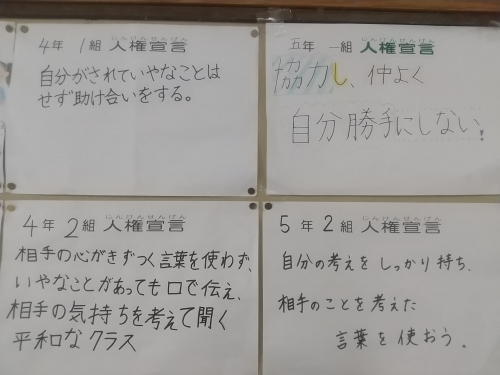 4年 1組 人権宣言
じんけんせんげん
自分がされていやなことは
せず助け合いをする。
五年 一組 人権宣言
じんけんせんげん
協力し、仲よく
自分勝手にしない!
4年 2組 人権宣言
じんけんせんげん
相手の心がきずつく言葉を使わず、
いやなことがあっても口で伝え、
相手の気持ちを考えて聞く
平和なクラス
5年 2組 人権宣言
じんけんせんげん
自分の考えをしっかり持ち、
相手のことを考えた
言葉を使おう。